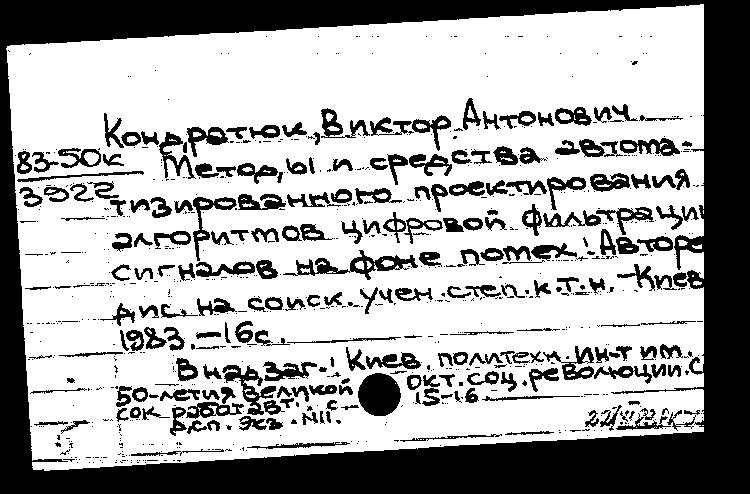 Кондратюк, Виктор Антонович.
83-50к Методы и средства автома-
3922 тизированного проектирования
алгоритмов цифровой фильтрации
сигналов на фоне помех: Авторе
дис. на соиск. учен. степ. к.т.н. - Киев
1983. - 16с.
В надзаг.: Киев. политехн. ин-т им.
50-летия Великой Окт. соц. революции. С
сок работ авт.: с 15-16
дсп. Экз. N11.